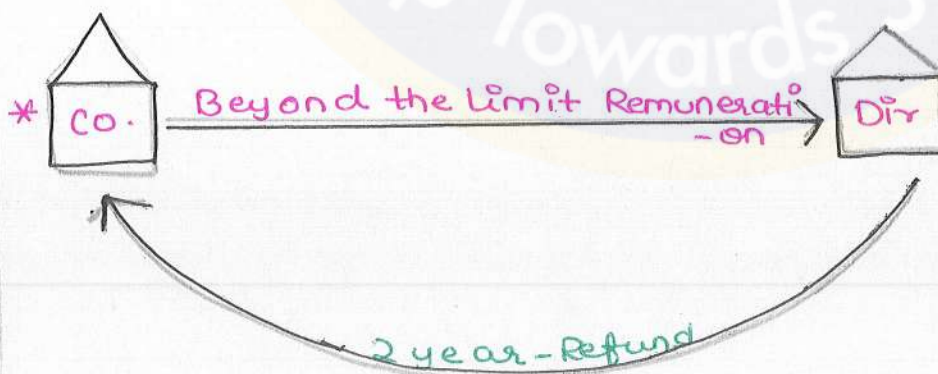 Towards
* Co.
Beyond the Limit Remunerati
-on
Dir
2 year-Refund